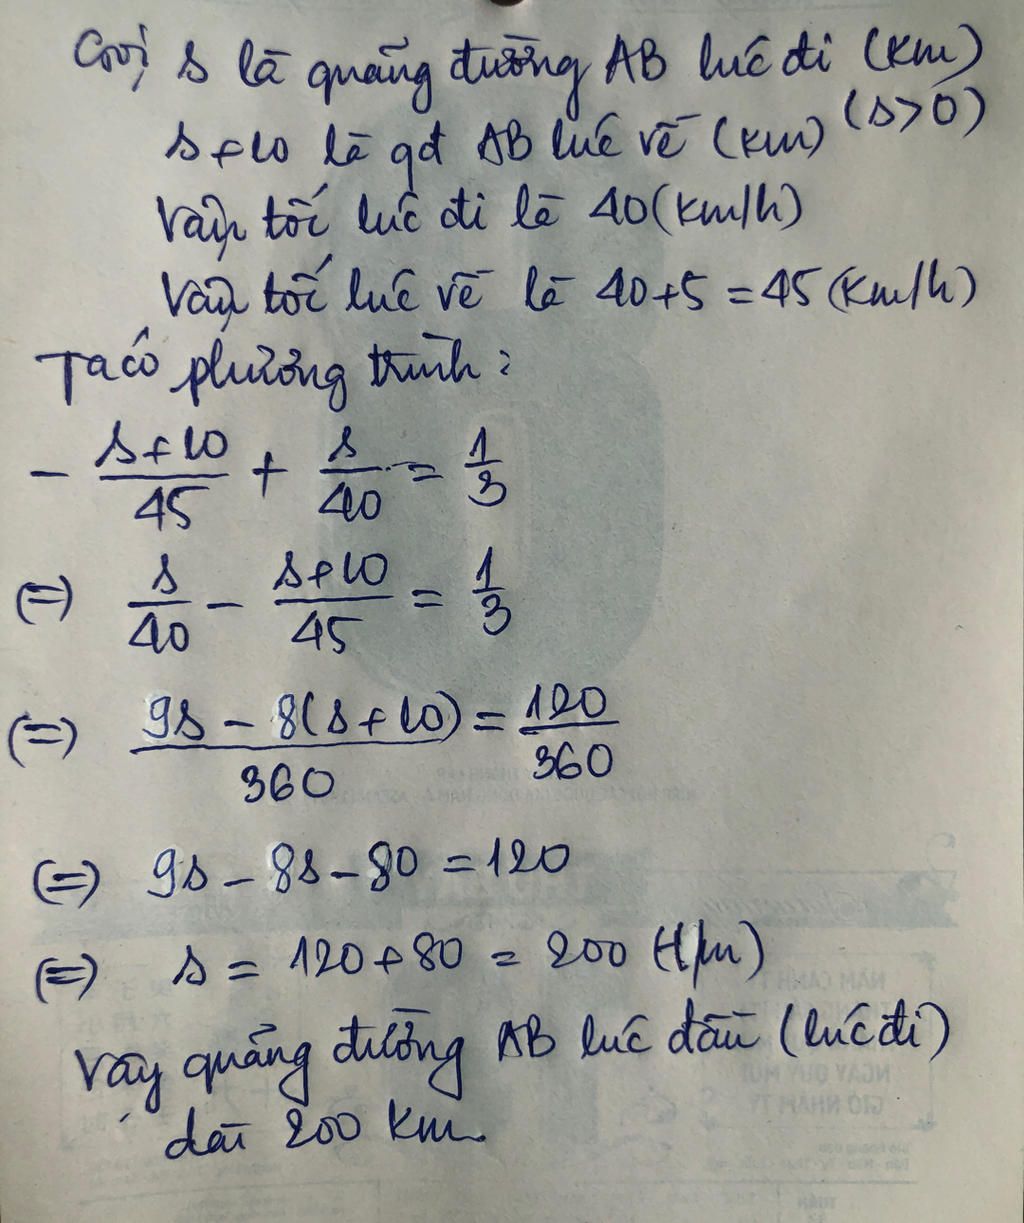 Gọi s là quãng đường AB lúc đi (km)
(s>0)
s+10 là qđ AB lúc về (km)
Vận tốc lúc đi là 40(km/h)
Vận tốc lúc về là 40+5=45(km/h)
Ta có phương trình:
- \frac{s+10}{45} + \frac{s}{40} = \frac{1}{3}
(=) \frac{s}{40} - \frac{s+10}{45} = \frac{1}{3}
(=) \frac{9s - 8(s+10)}{360} = \frac{120}{360}
(=) 9s - 8s - 80 = 120
(=) s = 120+80 = 200 (t/m)
Vậy quãng đường AB lúc đầu (lúc đi)
dài 200 km.